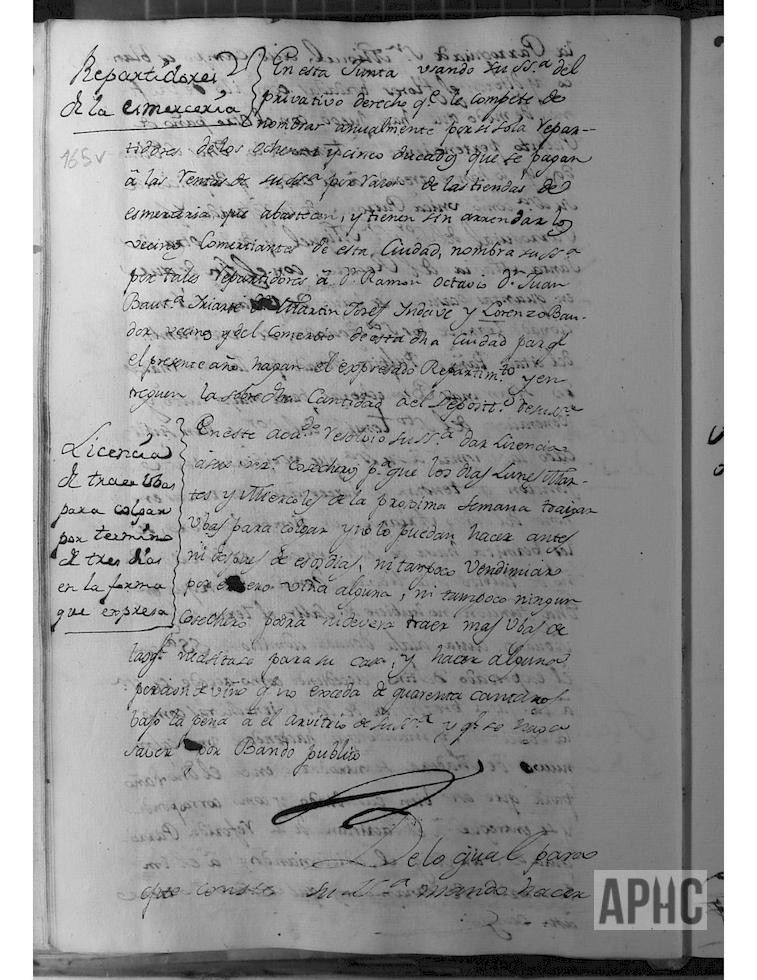 Repartidores
de la esmerceria
165v
En esta Junta usando su Ss.ª del
privativo derecho q.e le compete de
nombrar anualmente por si sola repar-
tidores de los ochenta y cinco ducados que se pagan
â las Rentas de su Ss.ª por razon de las tiendas de
esmerceria, que abastecen, y tienen sin arrendar los
vecinos Comerciantes de esta Ciudad, nombra su Ss.ª
por tales repartidores â D.n Ramon Octavio D.n Juan
Baut.ª Iriarte Martin Josef Yndave y Lorenzo Bau-
dor vecinos y del Comercio de esta dha Ciudad para q.e
el presente año hagan el expresado Repartim.to y en
treguen la sobre dha Cantidad â el Deposit.º de su Ss.ª
Licencia
de traer Ubas
para colgar
por termino
de tres dias
en la forma
que expresa
En este acu.do resolvio su Ss.ª dar licencia
â sus vez.s cosecheros p.ª que los dias Lunes Mar-
tes y Miercoles de la proxima semana traigan
Ubas para colgar y no lo puedan hacer antes
ni despues de esos dias, ni tampoco vendimiar
por entero viña alguna, ni tampoco ningun
Cosechero podra ni devera traer mas Ubas de
las q.e necesitase para su casa, y hacer alguna
porcion de vino q.e no exceda de quarenta cantaros
bajo la pena â el arvitrio de su Ss.ª y q.e se haga
saver por Bando publico
De lo qual para
que conste su Ss.ª mando hacer
APHC